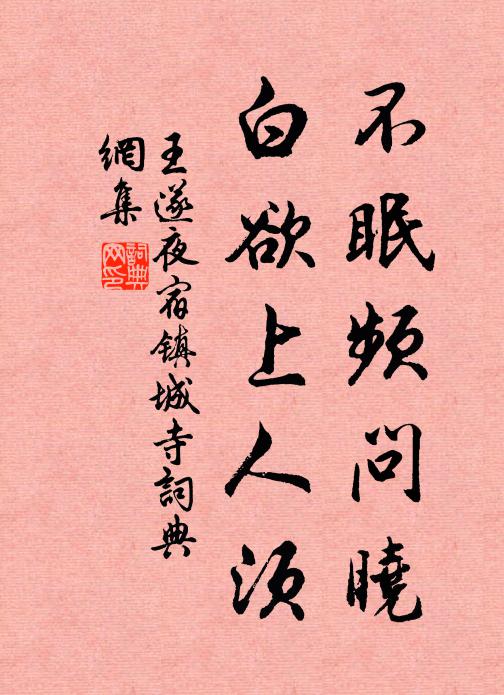 不眠頻問曉
白欲上人須
王遂夜宿镇城寺詞典
網集
詞典
网印